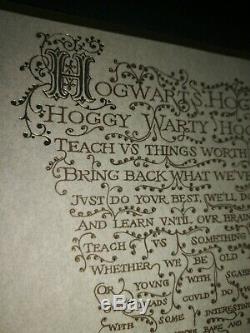 HOGWARTS, HO
HOGGY WARTY HO
TEACH VS THINGS WORTH
BRING BACK WHAT WE'VE
JVST DO YOVR BEST, WE'LL DO
AND LEARN VNTIL OVR BRAI
TEACH VS SOMETHING
WHETHER WE BE OLD
OR YOVNG WITH SCAB
OVR HEADS COVLD DO WI
WITH SOME INTERESTING